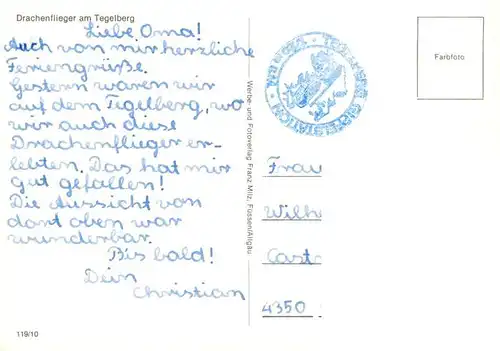 Drachenflieger am Tegelberg
Liebe Oma!
Auch von mir herzliche
Feriengrüße.
Gestern waren wir
auf dem Tegelberg, wo
wir auch diese
Drachenflieger er-
lebten. Das hat mir
gut gefallen!
Die Aussicht von
dort oben war
wunderbar.
Bis bald!
Dein
Christian
119/10
Werbe- und Fotoverlag Franz Milz, Füssen/Allgäu
Farbfoto
Frau
Wilh
Cast
4350